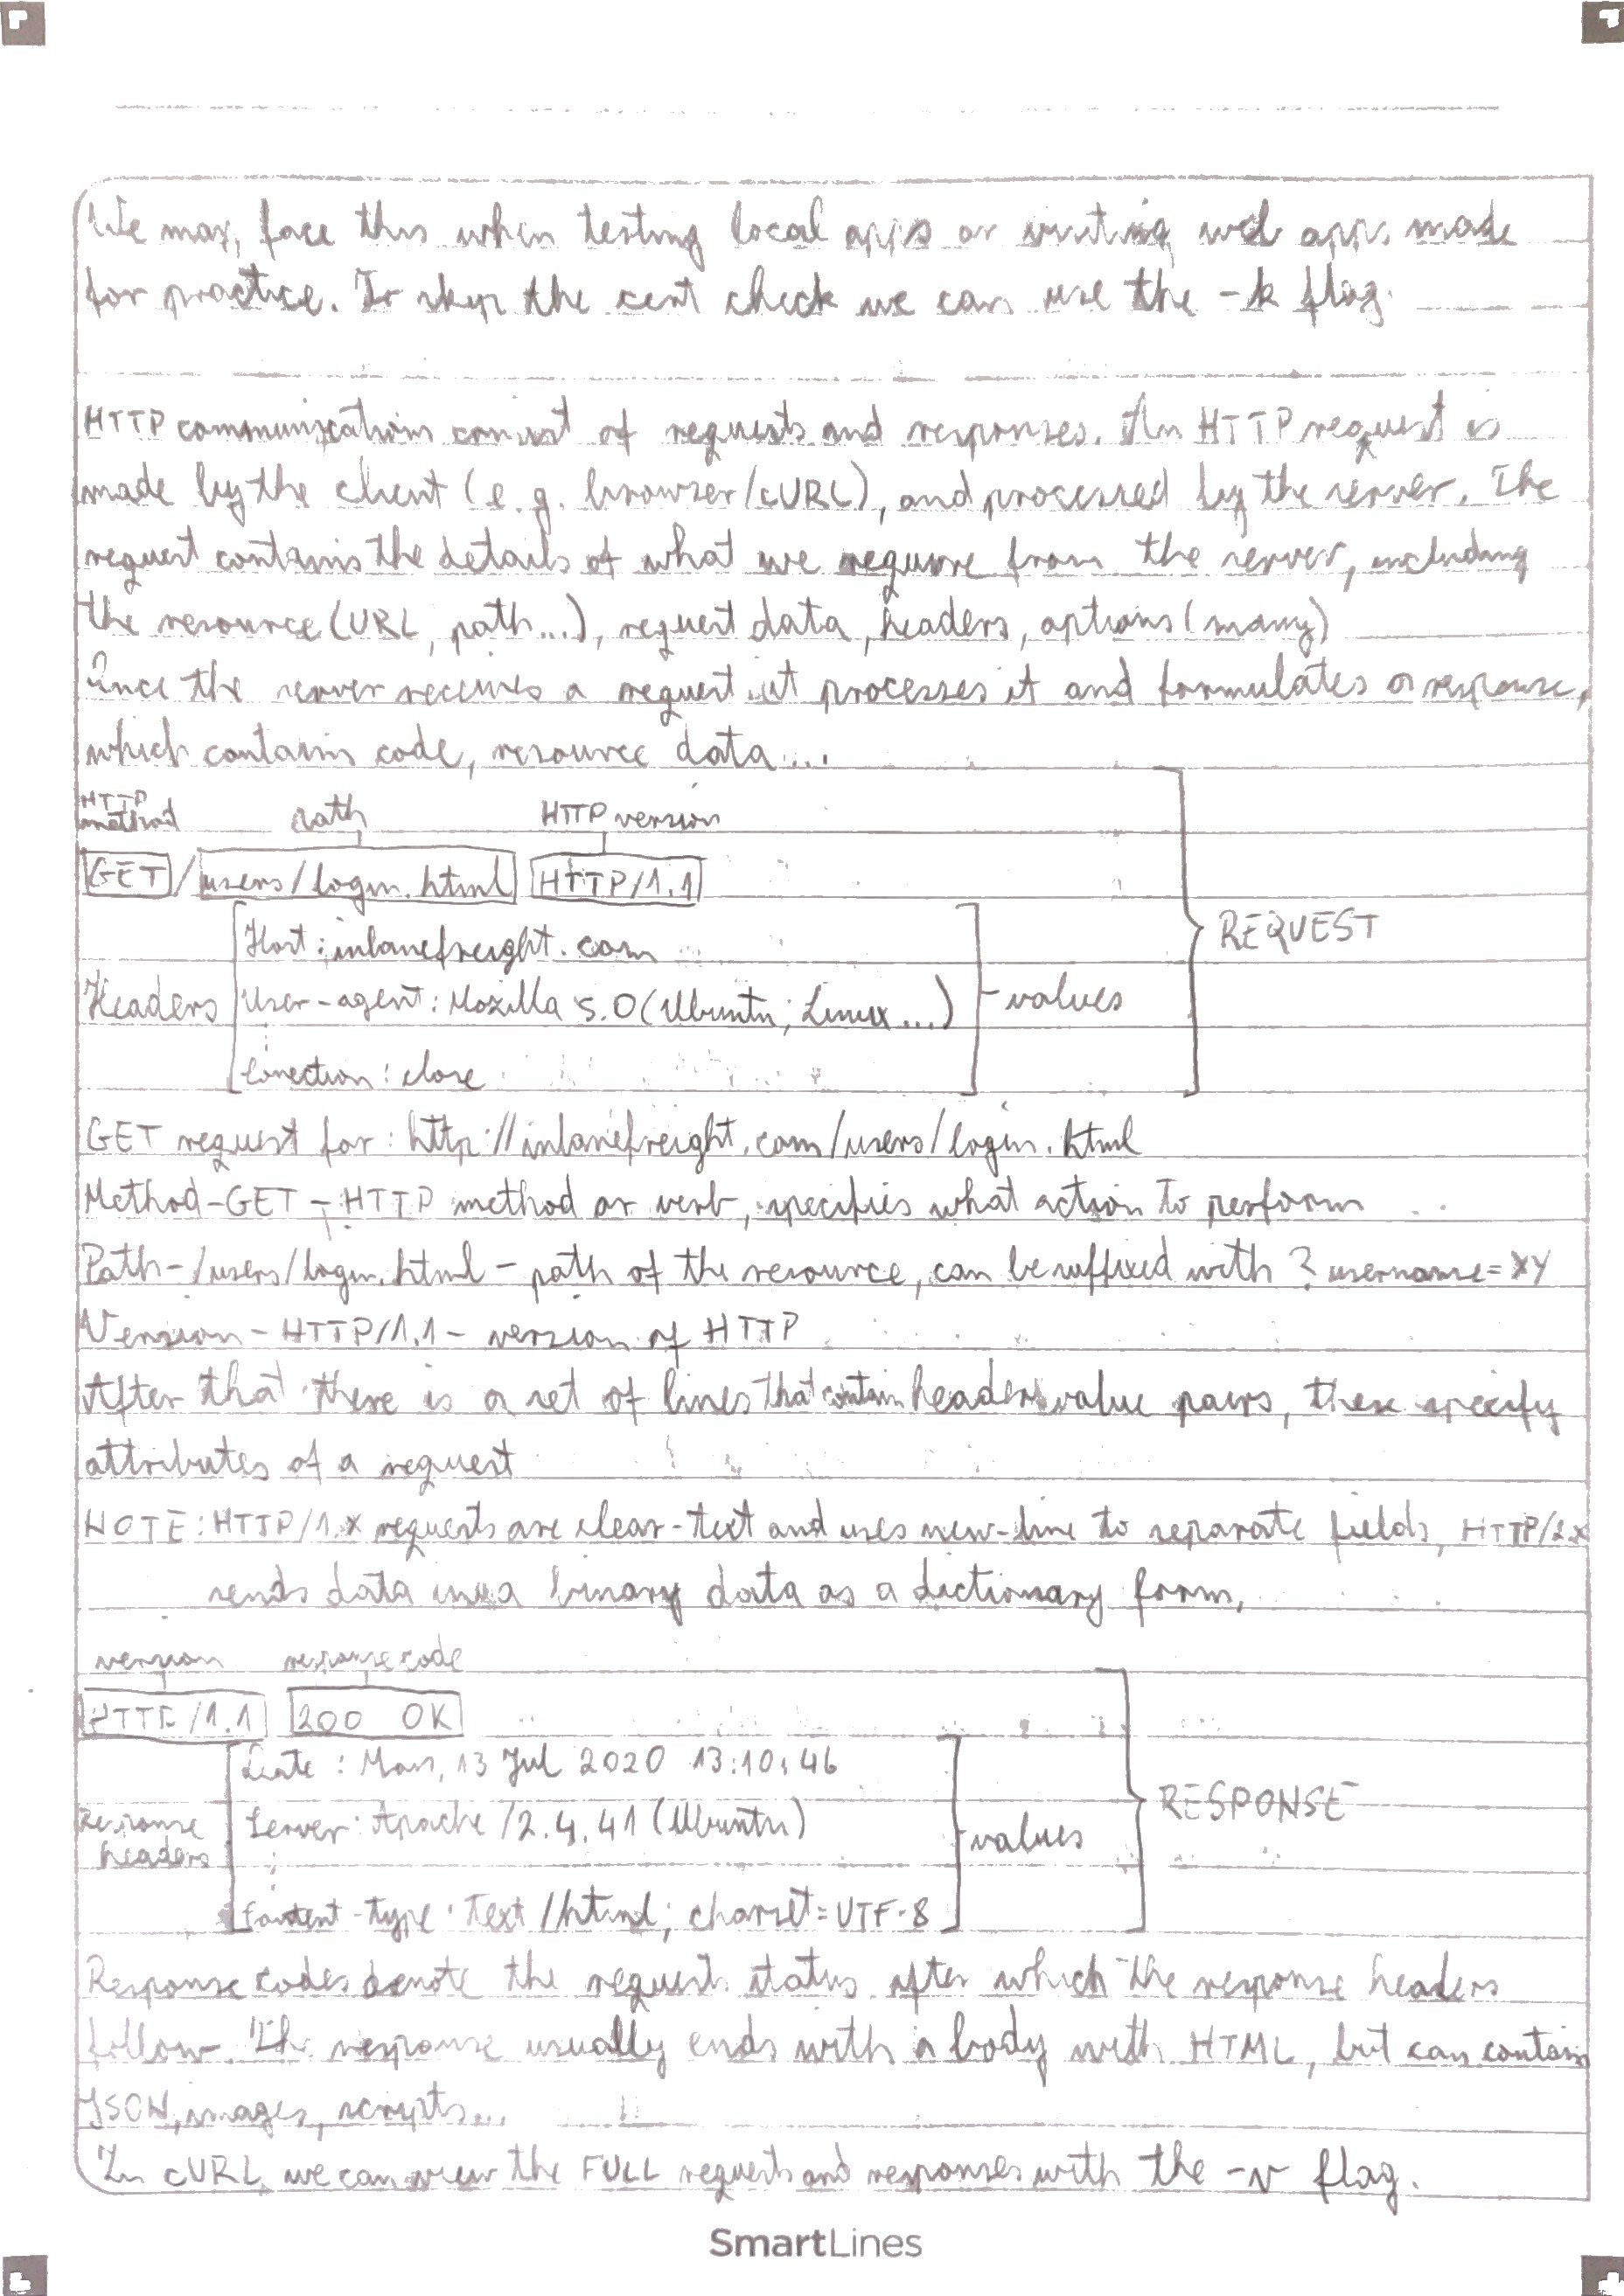 We may face this when testing local apps or visiting web apps made
for practice. To skip the cert check we can use the -k flag.
HTTP communication consist of requests and responses. An HTTP request is
made by the client (e.g. browser/cURL), and processed by the server. The
request contains the details of what we require from the server, including
the resource (URL, path...), request data, headers, options (many)
Once the server receives a request it processes it and formulates a response,
which contains code, resource data...
HTTP
method path HTTP version
GET /users/login.html HTTP/1.1
Host: inlanefreight.com
REQUEST
Headers User-agent: Mozilla 5.0 (Ubuntu; Linux...) values
Conection: close
GET request for: http://inlanefreight.com/users/login.html
Method-GET - HTTP method or verb, specifies what action to perform
Path-/users/login.html - path of the resource, can be suffixed with ?username=XY
Version-HTTP/1.1 - version of HTTP
After that there is a set of lines that contain headers value pairs, these specify
attributes of a request
NOTE: HTTP/1.X requests are clear-text and uses new-line to separate fields, HTTP/2.X
sends data a binary data as a dictionary form.
version response code
HTTP/1.1 200 OK
Date: Mon, 13 Jul 2020 13:10:46
RESPONSE
Response
headers Server: Apache/2.4.41 (Ubuntu) values
Content-type: text/html; charset=UTF-8
Response codes denote the request status after which the response headers
follow. The response usually ends with a body with HTML, but can contain
JSON, images, scripts...
In cURL we can view the FULL requests and responses with the -v flag.
SmartLines